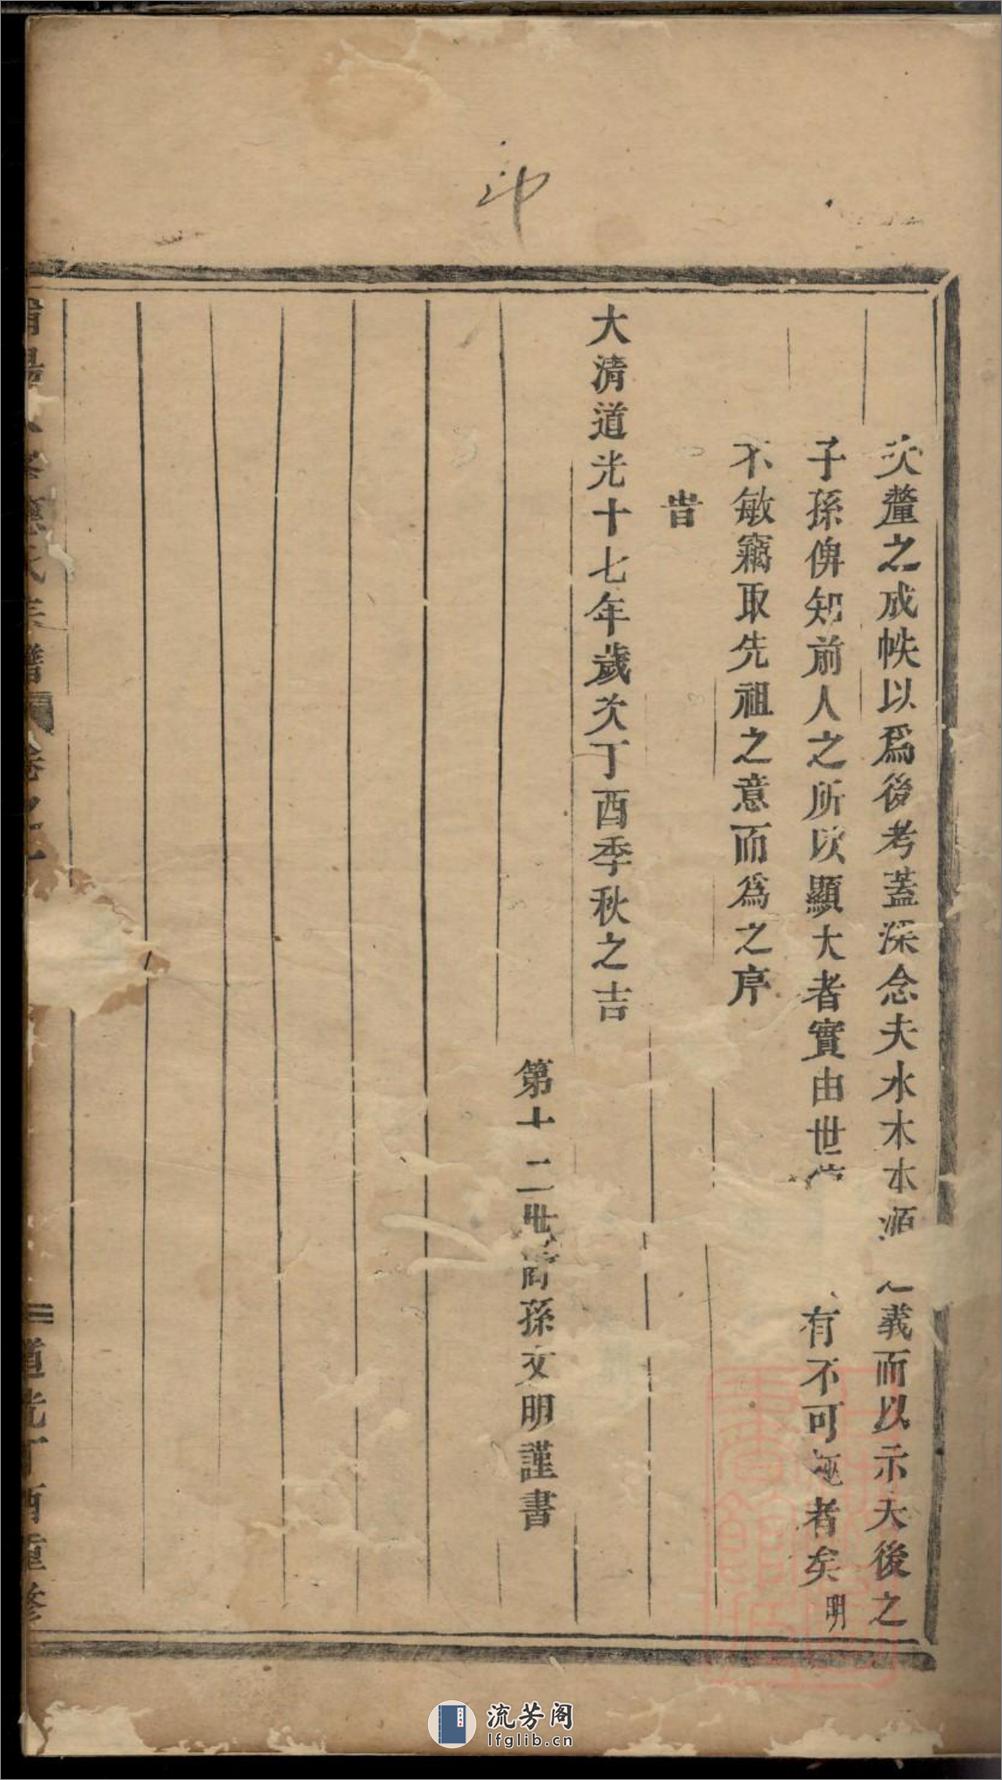 次釐之成帙以爲後考蓋深念夫水木本源之義而以示夫後之
子孫俾知前人之所以顯大者實由世 有不可誣者矣明
不敏竊取先祖之意而爲之序
旹
大清道光十七年歲次丁酉季秋之吉
第十二世裔孫文明謹書
氏宗譜 卷之一
道光丁酉重修
印
流芳阁
lfglib.cn